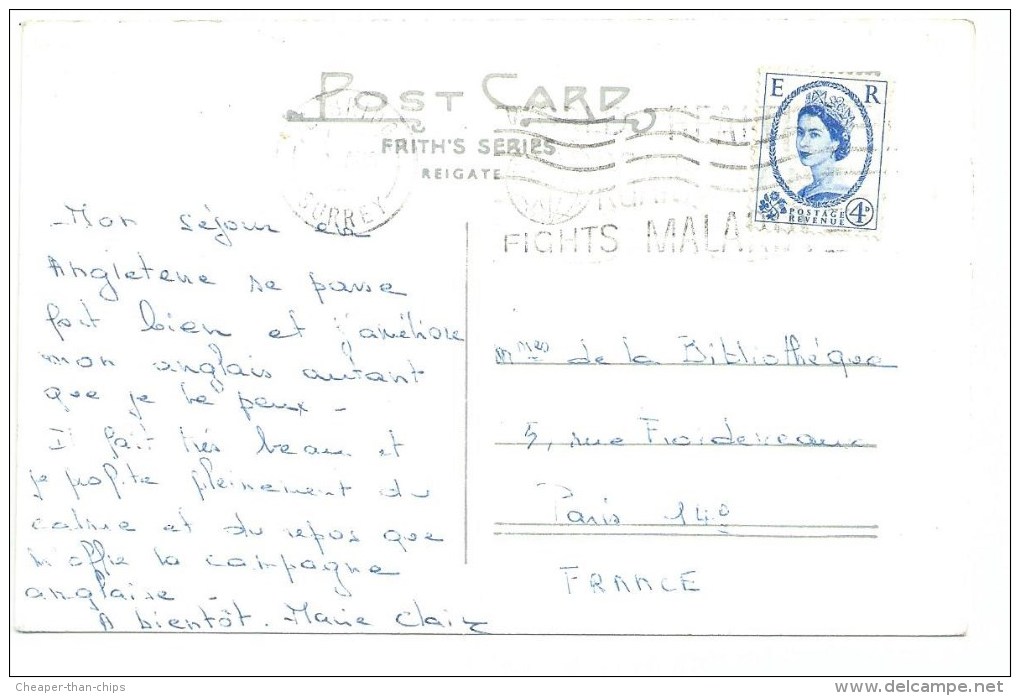 POST CARD
FRITH'S SERIES
REIGATE
E R
POSTAGE
REVENUE
4D
SURREY
FIGHTS MALARIA
Mon séjour en
Angleterre se passe
fort bien et j'améliore
mon anglais autant
que je le peux -
Il fait très beau et
je profite pleinement du
calme et du repos que
m'offre la campagne
anglaise -
A bientôt. Marie Claire
Mmes de la Bibliothèque
5, rue Froidevaux
Paris 14e
FRANCE
Cheaper-than-chips
www.delcampe.net